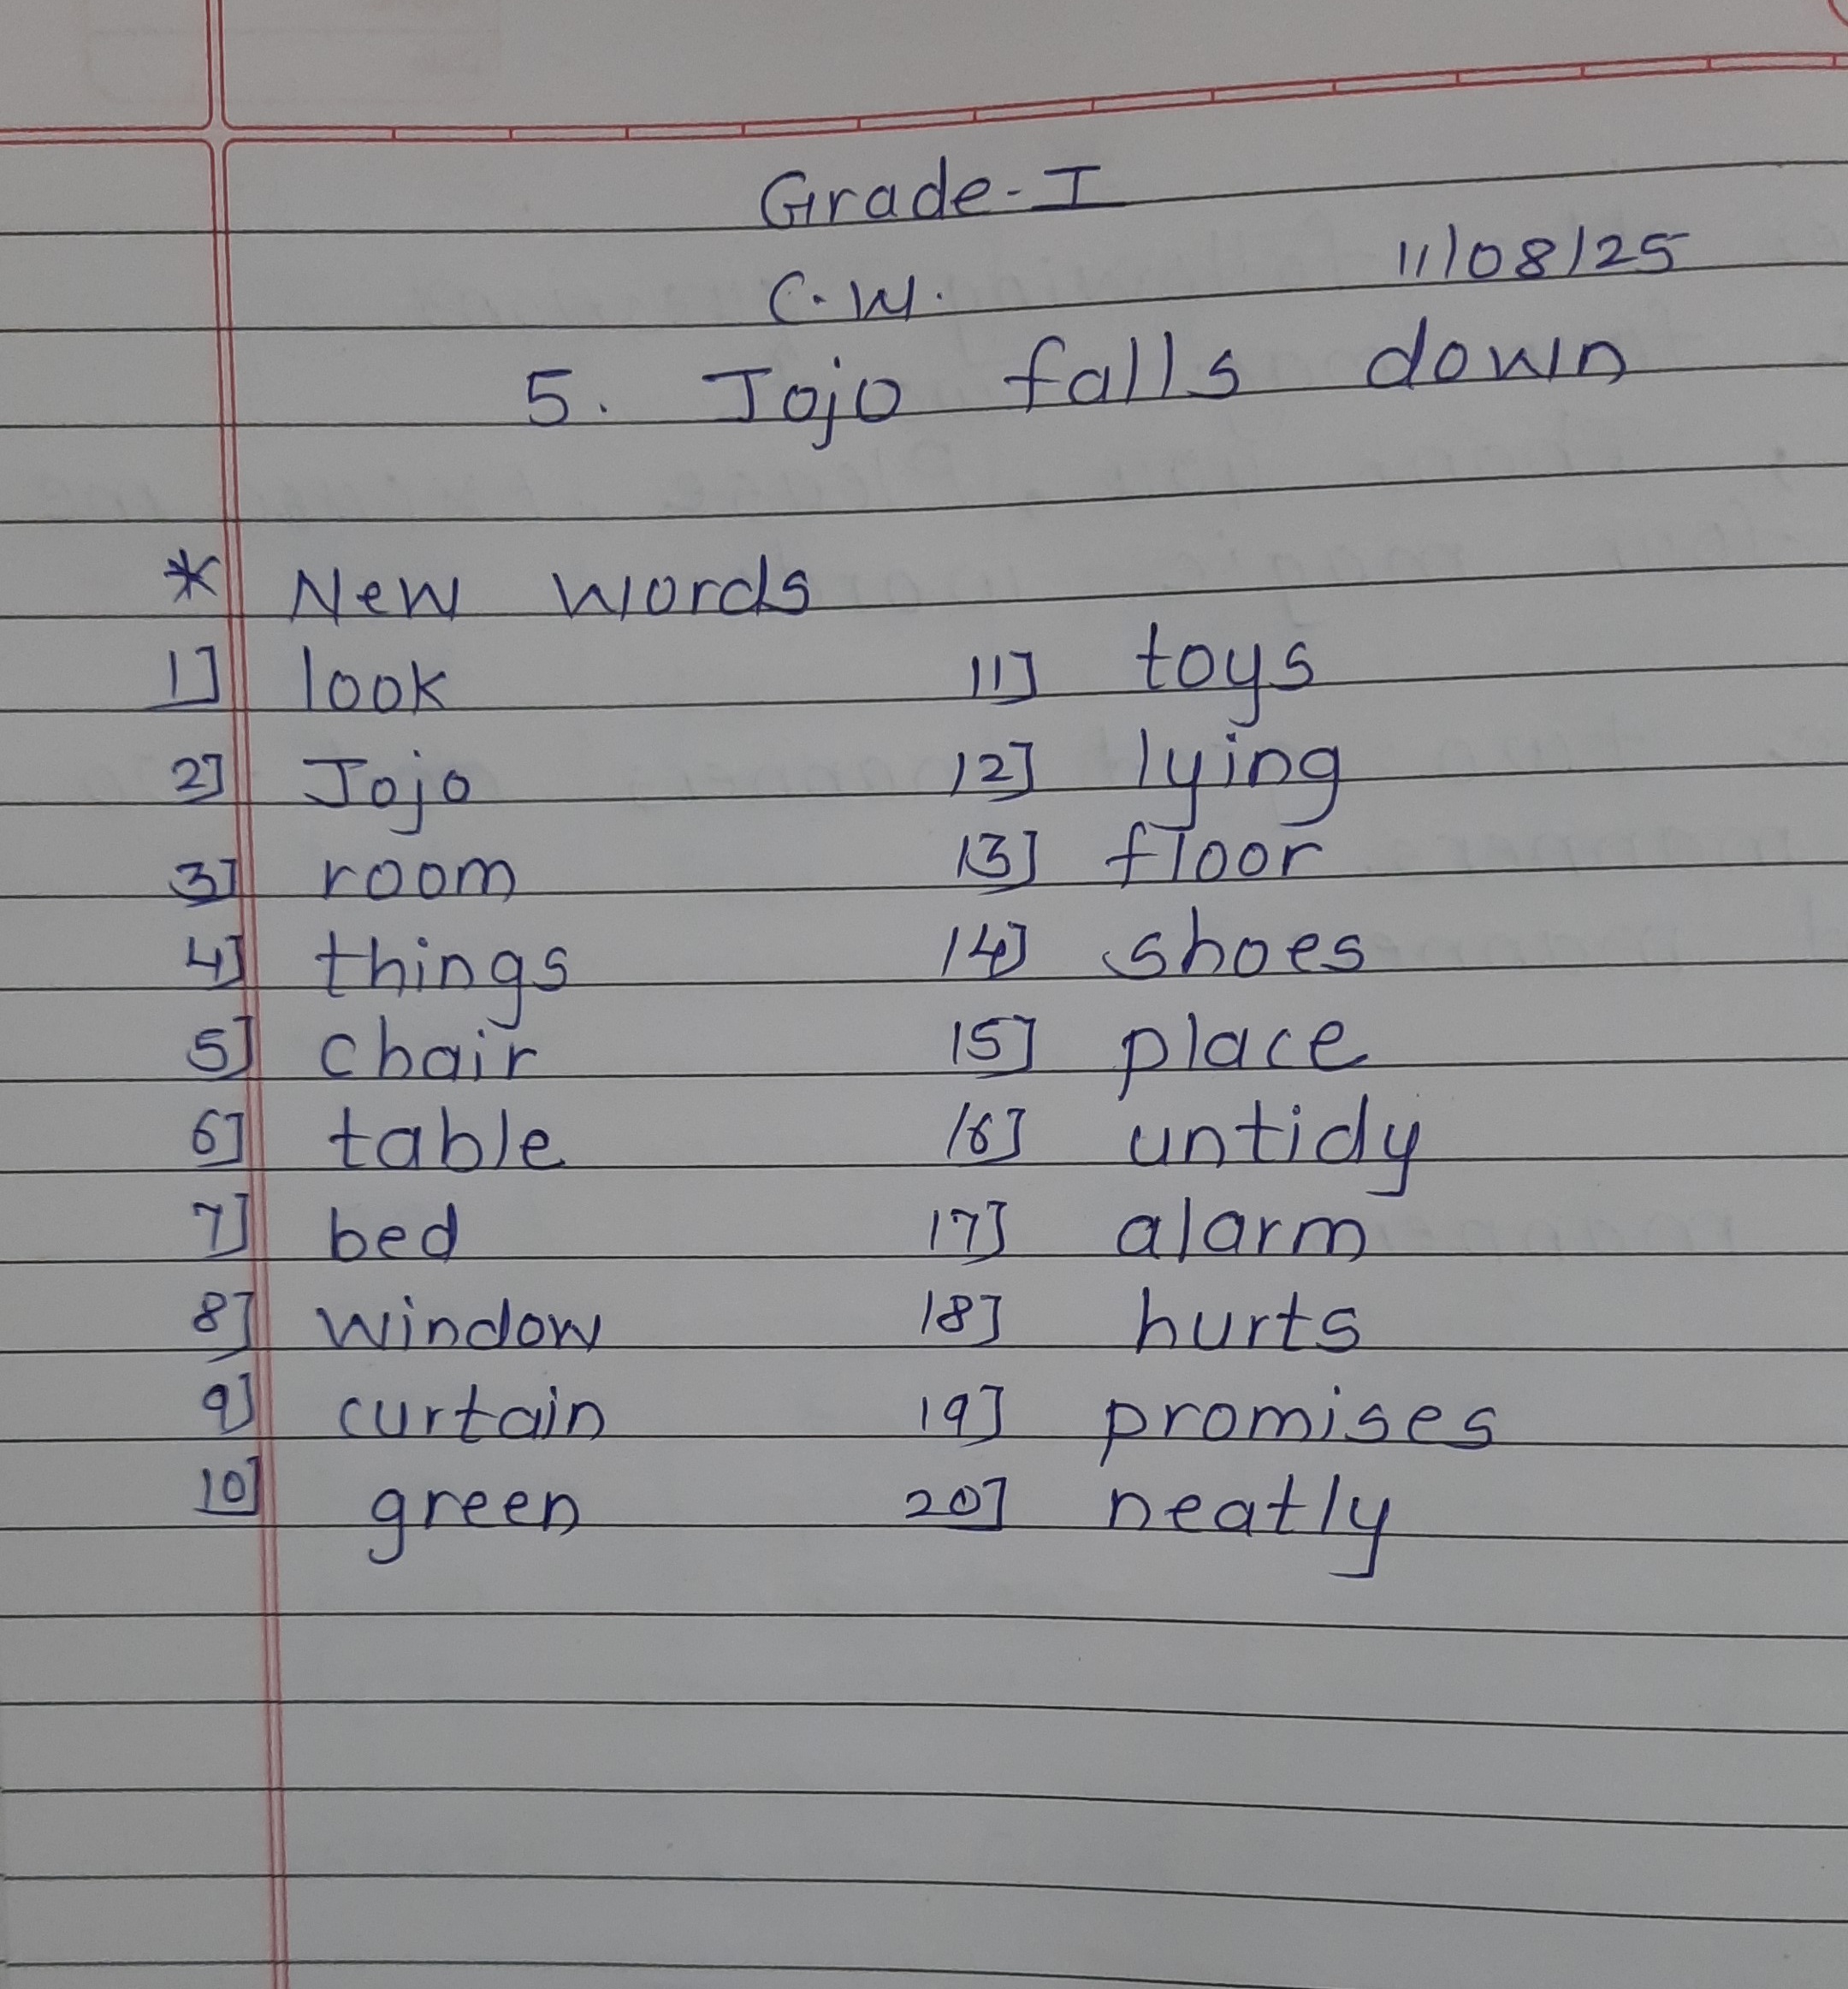 Grade-I
C.W. 11/08/25
5. Jojo falls down
* New words
1] look 11] toys
2] Jojo 12] lying
3] room 13] floor
4] things 14] shoes
5] chair 15] place
6] table 16] untidy
7] bed 17] alarm
8] window 18] hurts
9] curtain 19] promises
10] green 20] neatly